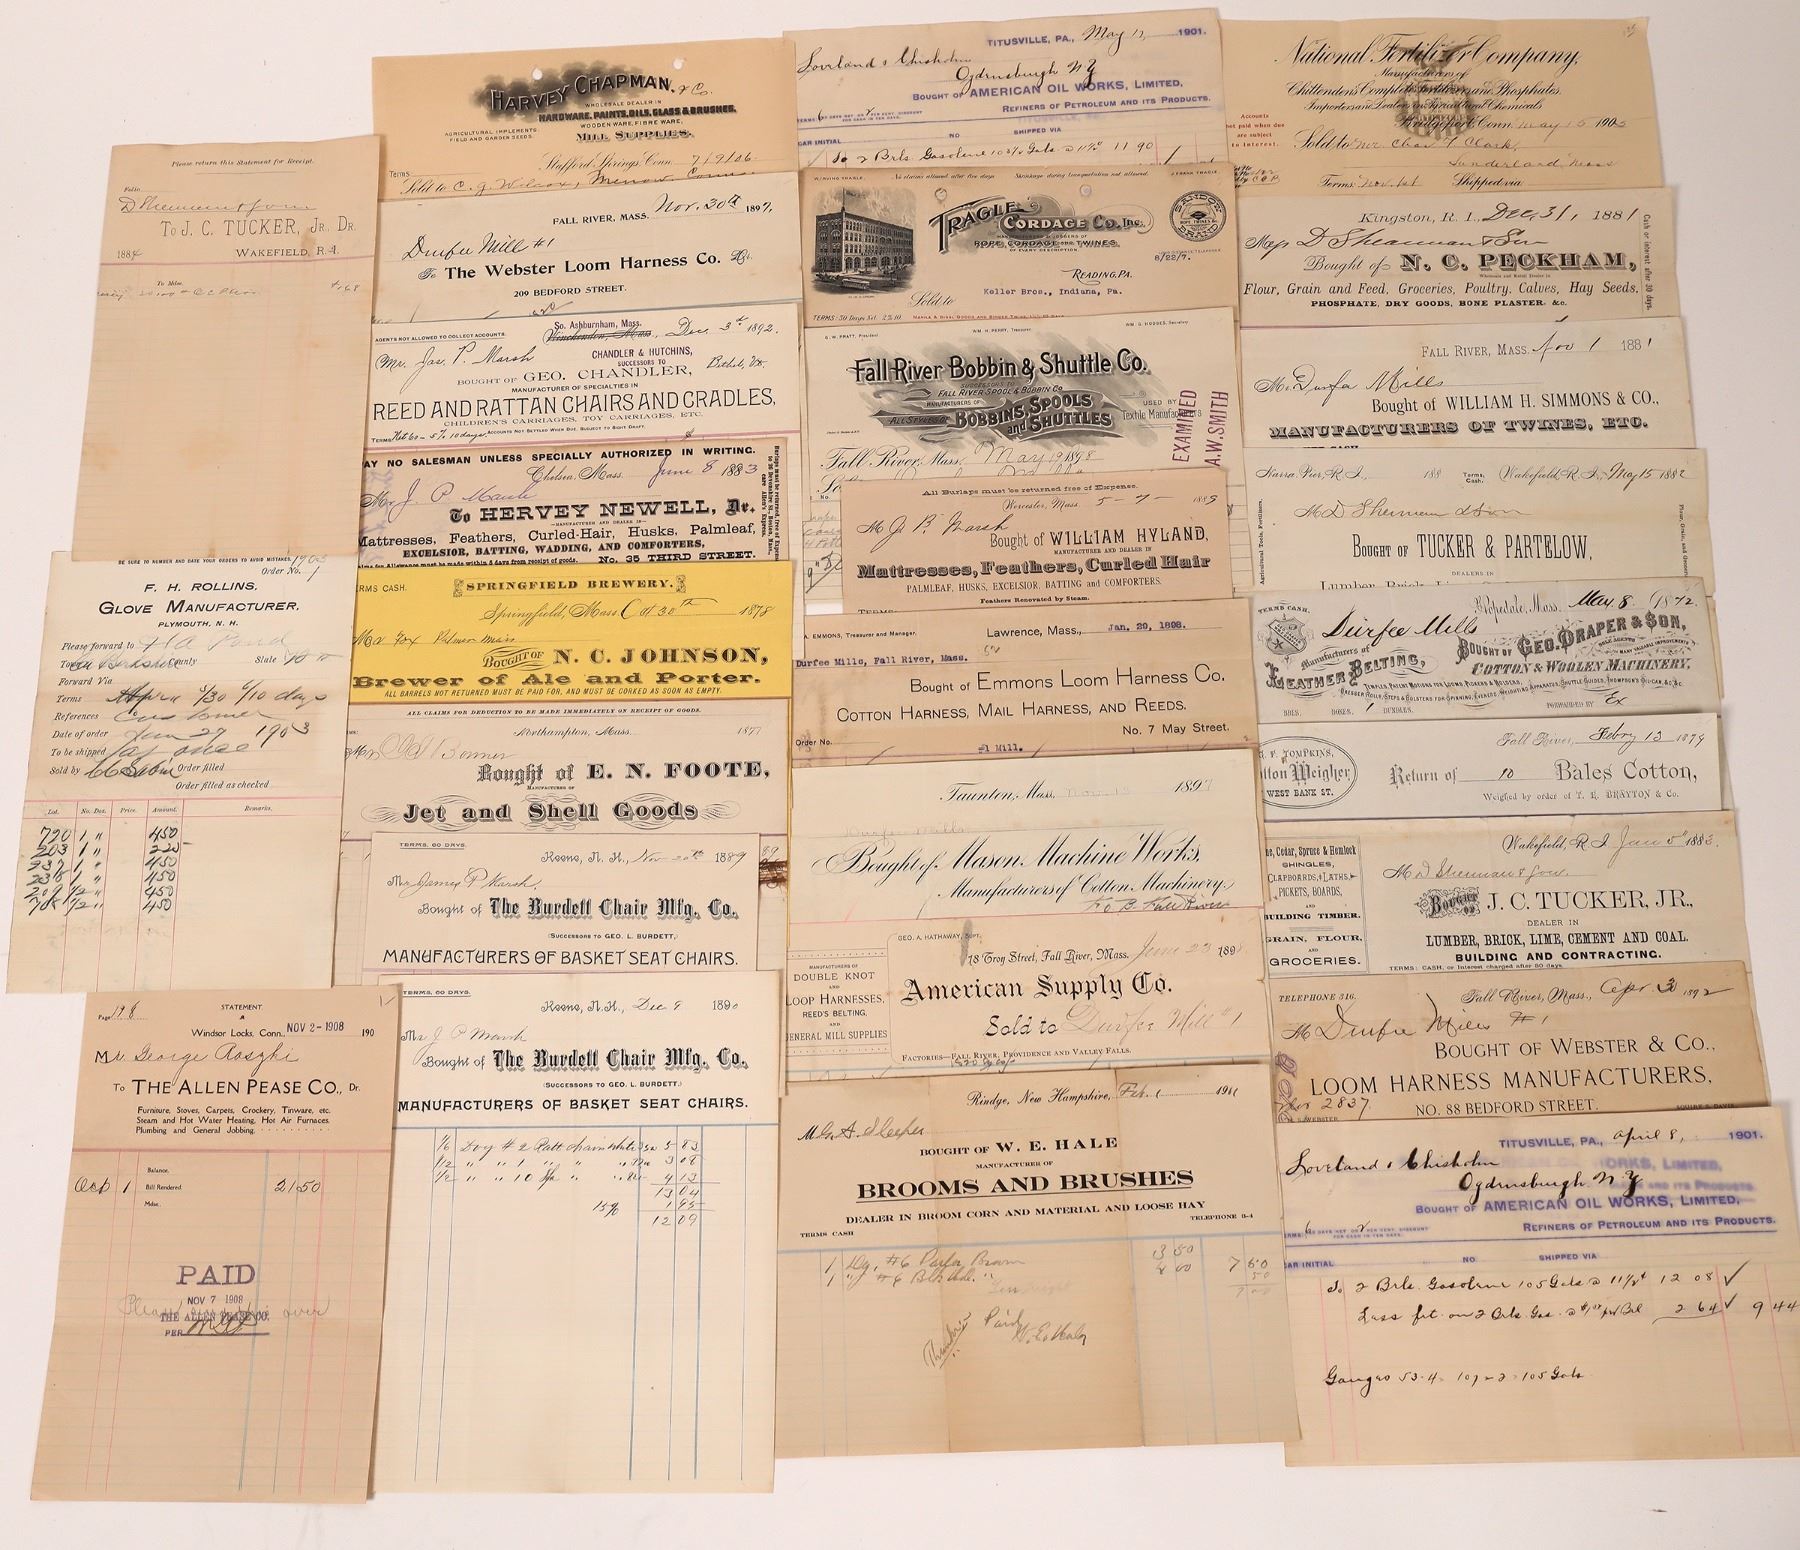 Please return this Statement for Receipt.
Folio
D Sherman & Son
To J. C. TUCKER, JR. Dr.
1884 WAKEFIELD, R. I.
To Mdse.
BE SURE TO NUMBER AND DATE YOUR ORDERS TO AVOID MISTAKES. 1903
Order No. 1
F. H. ROLLINS,
GLOVE MANUFACTURER,
PLYMOUTH, N. H.
Please forward to
Town County State
Forward Via
Terms
References Customer
Date of order Jan 27 1903
To be shipped at once
Sold by Order filled
Order filled as checked
Lot. No. Doz. Price. Amount. Remarks.
790 1 " 450
203 1 " 225
237 1 " 450
238 1 " 450
209 1/2 " 450
1/2 " 450
Page 198 STATEMENT
Windsor Locks, Conn., NOV 2-1908 190
Mr. George Roszki
To THE ALLEN PEASE CO., Dr.
Furniture, Stoves, Carpets, Crockery, Tinware, etc.
Steam and Hot Water Heating, Hot Air Furnaces.
Plumbing and General Jobbing.
Balance.
Oct 1 Bill Rendered. 21.50
Mdse.
PAID
NOV 7 1908
THE ALLEN PEASE CO.
PER
over
HARVEY CHAPMAN, & Co.
WHOLESALE DEALER IN
HARDWARE, PAINTS, OILS, GLASS & BRUSHES,
WOODEN WARE, FIBRE WARE,
AGRICULTURAL IMPLEMENTS,
FIELD AND GARDEN SEEDS.
MILL SUPPLIES.
Stafford Springs, Conn. 7/9/06
Terms
Sold to C. J. Wilcox, Merrow Conn
FALL RIVER, MASS. Nov. 30th 1897.
Durfee Mill #1
To The Webster Loom Harness Co. Dr.
209 BEDFORD STREET.
AGENTS NOT ALLOWED TO COLLECT ACCOUNTS.
So. Ashburnham, Mass.
Winchendon, Mass., Dec. 3rd 1892.
Mr. Jas. P. Marsh Bethel, Vt.
CHANDLER & HUTCHINS,
SUCCESSORS TO
BOUGHT OF GEO. CHANDLER,
MANUFACTURER OF SPECIALTIES IN
REED AND RATTAN CHAIRS AND CRADLES,
CHILDREN'S CARRIAGES, TOY CARRIAGES, ETC.
TERMS Net 60 - 5% 10 days. ACCOUNTS NOT SETTLED WHEN DUE, SUBJECT TO SIGHT DRAFT.
PAY NO SALESMAN UNLESS SPECIALLY AUTHORIZED IN WRITING.
Chelsea, Mass. June 8 1883
Mr J. P. Marsh
To HERVEY NEWELL, Dr.
MANUFACTURER AND DEALER IN
Mattresses, Feathers, Curled-Hair, Husks, Palmleaf,
EXCELSIOR, BATTING, WADDING, AND COMFORTERS,
No. 35 THIRD STREET.
TERMS CASH.
SPRINGFIELD BREWERY.
Springfield, Mass. Oct 30th 1878
Mr Fox Palmer Mass
BOUGHT OF N. C. JOHNSON,
Brewer of Ale and Porter.
ALL BARRELS NOT RETURNED MUST BE PAID FOR, AND MUST BE CORKED AS SOON AS EMPTY.
ALL CLAIMS FOR DEDUCTION TO BE MADE IMMEDIATELY ON RECEIPT OF GOODS.
Northampton, Mass. 1877
Bought of E. N. FOOTE,
MANUFACTURER OF
Jet and Shell Goods
TERMS, 60 DAYS.
Keene, N. H., Nov 20th 1889
Mr James P Marsh
Bought of The Burdett Chair Mfg. Co.
(SUCCESSORS TO GEO. L. BURDETT,)
MANUFACTURERS OF BASKET SEAT CHAIRS.
TERMS, 60 DAYS.
Keene, N. H., Dec 9 1890
Mr J. P Marsh
Bought of The Burdett Chair Mfg. Co.
(SUCCESSORS TO GEO. L. BURDETT.)
MANUFACTURERS OF BASKET SEAT CHAIRS.
5 83
3 08
4 13
13 04
15% 1 95
12 09
TITUSVILLE, PA., May 13 1901.
Loveland & Chisholm
Ogdensburgh N.Y
BOUGHT OF AMERICAN OIL WORKS, LIMITED,
REFINERS OF PETROLEUM AND ITS PRODUCTS.
CAR INITIAL NO SHIPPED VIA
To 2 Brls. Gasoline 11 90
W. IRVING TRAGLE, No claims allowed after five days Shrinkage during transportation not allowed. J. FRANK TRAGLE,
TRAGLE CORDAGE CO. INC.
ROPE, CORDAGE AND TWINES,
OF EVERY DESCRIPTION
SANDOW BRAND
READING, PA. 8/22/7.
Sold to Keller Bros., Indiana, Pa.
TERMS: 30 DAYS Net 2% 10
G. W. PRATT, President WM. H. PERRY, Treasurer. WM. G. HODGES, Secretary
Fall River Bobbin & Shuttle Co.
SUCCESSORS TO
FALL RIVER SPOOL & BOBBIN CO
MANUFACTURERS OF
ALL STYLES OF BOBBINS, SPOOLS and SHUTTLES
USED BY Textile Manufacturers
EXAMINED
A.W. SMITH
Fall River, Mass. May 19 1898
All Burlaps must be returned free of Expense.
Worcester, Mass. 5-7- 1889
M J. P. Marsh
Bought of WILLIAM HYLAND,
MANUFACTURER AND DEALER IN
Mattresses, Feathers, Curled Hair
PALMLEAF, HUSKS, EXCELSIOR, BATTING and COMFORTERS.
Feathers Renovated by Steam.
A. EMMONS, Treasurer and Manager. Lawrence, Mass., Jan. 29, 1898.
Durfee Mills, Fall River, Mass.
Bought of Emmons Loom Harness Co.
COTTON HARNESS, MAIL HARNESS, AND REEDS.
No. 7 May Street.
Order No. #1 Mill.
Taunton, Mass. Nov. 13 1897
Durfee Mills
Bought of Mason Machine Works,
Manufacturers of Cotton Machinery.
F.O.B. Fall River
GEO. A. HATHAWAY, SUPT.
MANUFACTURERS OF
DOUBLE KNOT
AND
LOOP HARNESSES,
REEDS, BELTING,
AND
GENERAL MILL SUPPLIES
78 Troy Street, Fall River, Mass. June 23 189
American Supply Co.
Sold to Durfee Mill #1
FACTORIES—FALL RIVER, PROVIDENCE AND VALLEY FALLS.
Rindge, New Hampshire, Feb. 1 1911
M G. A. Sleeper
BOUGHT OF W. E. HALE
MANUFACTURER OF
BROOMS AND BRUSHES
DEALER IN BROOM CORN AND MATERIAL AND LOOSE HAY
TERMS CASH TELEPHONE 8-4
1 Dz. #6 Parlor Broom
Paid
National Fertilizer Company,
Manufacturers of
Chittenden's Complete Fertilizers and Phosphates.
Importers and Dealers in Agricultural Chemicals
Accounts not paid when due are subject to Interest.
Bridgeport, Conn. May 15 1905
Sold to Mr. Chas. Y Clark,
Sunderland, Mass
Terms: Nov. 1st Shipped via
Kingston, R. I., Dec. 31, 1881
M D Shearman & Son
Bought of N. C. PECKHAM,
Wholesale and Retail Dealer in
Flour, Grain and Feed, Groceries, Poultry, Calves, Hay Seeds,
PHOSPHATE, DRY GOODS, BONE PLASTER, &c.
Cash or interest after 30 days.
FALL RIVER, MASS. Nov 1 1881
M Durfee Mills
Bought of WILLIAM H. SIMMONS & CO.,
MANUFACTURERS OF TWINES, ETC.
Narra. Pier, R. I., 188 Terms, Cash. Wakefield, R. I., May 15 1882
M D Sherman & Son
BOUGHT OF TUCKER & PARTELOW,
DEALERS IN
Agricultural Tools, Fertilizers.
TERMS CASH. Hopedale, Mass. May. 8. 1872
Durfee Mills
BOUGHT OF GEO. DRAPER & SON,
Manufacturers of LEATHER BELTING, COTTON & WOOLEN MACHINERY,
BDLS. BOXES. BUNDLES. FORWARDED BY Ex
TOMPKINS,
Cotton Weigher
WEST BANK ST.
Fall River, Febry 13 1879
Return of 10 Bales Cotton,
Weighed by order of T. E. BRAYTON & Co.
Pine, Cedar, Spruce & Hemlock
SHINGLES,
CLAPBOARDS, LATHS,
PICKETS, BOARDS,
AND
BUILDING TIMBER.
GRAIN, FLOUR,
AND
GROCERIES.
Wakefield, R. I. Jan 5th 1883
M D Sherman & Son
Bought of J. C. TUCKER, JR.,
DEALER IN
LUMBER, BRICK, LIME, CEMENT AND COAL.
BUILDING AND CONTRACTING.
TERMS: CASH, or Interest charged after 30 days.
TELEPHONE 316. Fall River, Mass., Apr 30 1892
M Durfee Mills #1
BOUGHT OF WEBSTER & CO.,
LOOM HARNESS MANUFACTURERS,
2837. NO. 88 BEDFORD STREET.
TITUSVILLE, PA., April 8, 1901.
Loveland & Chisholm
Ogdensburgh N.Y
BOUGHT OF AMERICAN OIL WORKS, LIMITED,
REFINERS OF PETROLEUM AND ITS PRODUCTS.
CAR INITIAL NO SHIPPED VIA
To 2 Brls. Gasoline 105 Gals @ 11½¢ 12 08
Less frt. on 2 Brls Gas. 2 64 9 44
Gauges 53-4 = 107 - 2 = 105 Gals